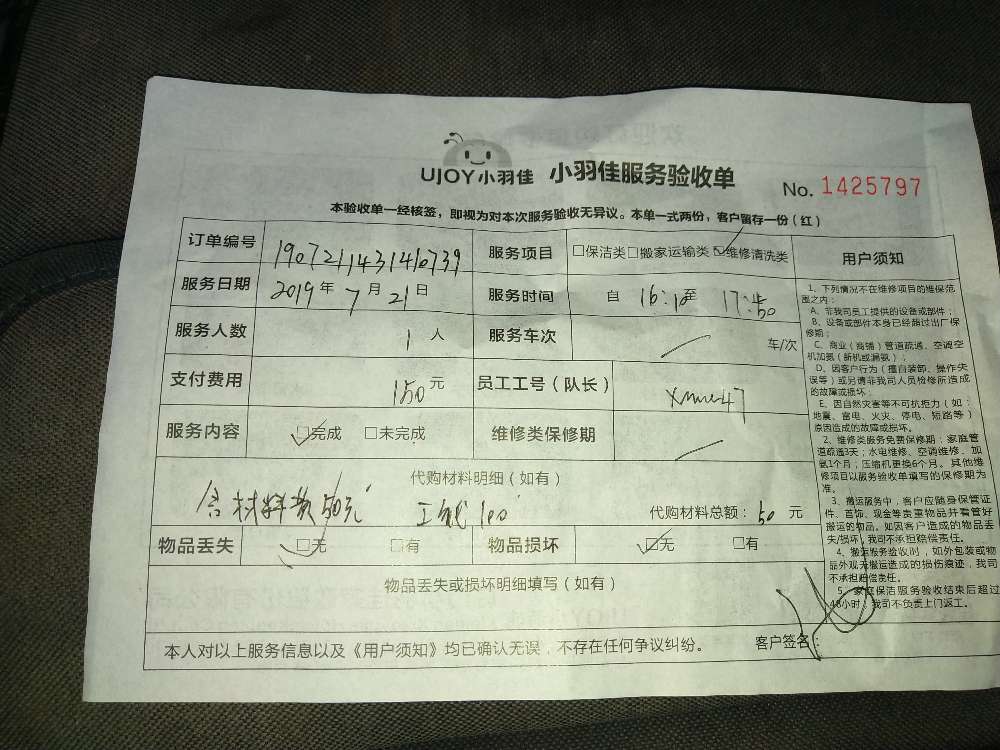 UJOY小羽佳 小羽佳服务验收单 No. 1425797
本验收单一经核签，即视为对本次服务验收无异议。本单一式两份，客户留存一份（红）
订单编号 服务项目 □保洁类□搬家运输类☑维修清洗类
服务日期 2019年7月21日 服务时间 自 16:10至 17:50
服务人数 1人 服务车次 车/次
支付费用 150元 员工工号（队长）
服务内容 ☑完成 □未完成 维修类保修期
代购材料明细（如有）
含材料费50元 100
代购材料总额：50元
物品丢失 ☑无 □有 物品损坏 ☑无 □有
物品丢失或损坏明细填写（如有）
本人对以上服务信息以及《用户须知》均已确认无误，不存在任何争议纠纷。 客户签名：
用户须知
1、下列情况不在维修项目的维保范
围之内：
A、非我司员工提供的设备或部件；
B、设备或部件本身已经超过出厂保
修期；
C、商业（商铺）管道疏通、空调空
机加氨（新机或漏氨）；
D、因客户行为（擅自装卸、操作失
误等）或另请非我司人员检修所造成
的故障或损坏；
E、因自然灾害等不可抗拒力（如：
地震、雷电、火灾、停电、短路等）
原因造成的故障或损坏。
2、维修类服务免费保修期：家庭管
道疏通3天；水电维修、空调维修、加
氨1个月；压缩机更换6个月。其他维
修项目以服务验收单填写的保修期为
准。
3、搬运服务中，客户应随身保管证
件、首饰、现金等贵重物品并看管好
搬运的物品。如因客户造成的物品丢
失/损坏，我司不承担赔偿责任。
4、搬运服务验收时，如外包装或物
品外观无搬运造成的损伤痕迹，我司
不承担赔偿责任。
5、家庭保洁服务验收结束后超过
48小时，我司不负责上门返工。